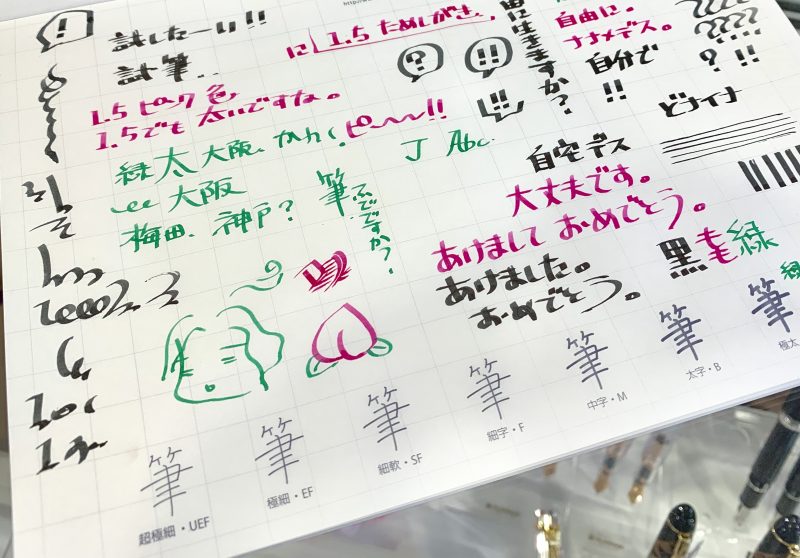 試したーい!!
試筆..
に 1.5 ためしがき
1.5 ピンク 色
1.5でも 太いですね。
ピ〜〜!!
緑 太 大阪、かんく、
大阪
梅田、神戸?
筆
ふでですか?
J Abc.
自由に。
ナナメデス。
自分で
!!
? !!
????
????
?
!!
!!
!
どナイナ
自宅デス
大丈夫です。
あけまして おめでとう。
あけました。
おめでとう。
黒 もも 緑
緑
筆
超極細・UEF
筆
極細・EF
筆
細軟・SF
筆
細字・F
筆
中字・M
筆
太字・B
筆
極太